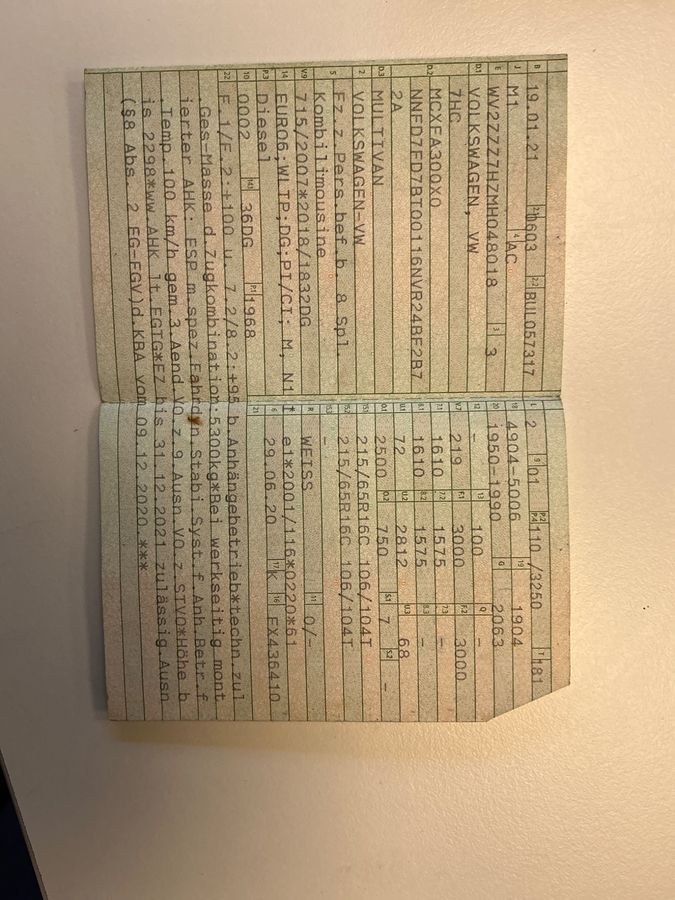 B 19.01.21 2.1 0603 2.2 BUL057317
J M1 4 AC
E WV2ZZZ7HZMH048018 3 3
D.1 VOLKSWAGEN, VW
7HC
D.2 MCXFA300X0
NNFD7FD7BT00116NVR24BF2B7
2A
D.3 MULTIVAN
2 VOLKSWAGEN-VW
5 Fz.z.Pers.bef.b. 8 Spl.
Kombilimousine
V.9 715/2007*2018/1832DG
14 EURO6;WLTP;DG;PI/CI; M, N1 I
P.3 Diesel
10 0002 14.1 36DG P.1 1968
L 2 9 01 P.2 P.4 110 /3250 T 181
18 4904-5006 19 1904
20 1950-1990 G 2063
12 – 13 100 Q –
V.7 219 F.1 3000 F.2 3000
7.1 1610 7.2 1575 7.3 –
8.1 1610 8.2 1575 8.3 –
U.1 72 U.2 2812 U.3 68
O.1 2500 O.2 750 S.1 7 S.2 –
15.1 215/65R16C 106/104T
15.2 215/65R16C 106/104T
15.3 –
R WEISS 11 0/–
K e1*2001/116*0220*61
6 29.06.20 17 K 16 FX436410
21
22 F.1/F.2:+100 u. 7.2/8.2:+95 b.Anhängebetrieb*techn.zul
.Ges-Masse d.Zugkombination:5300kg*Bei werkseitig mont
ierter AHK: ESP m.spez.Fahrdyn.Stabi.Syst.f.Anh.Betr.f
.Temp.100 km/h gem.3.Aend.VO.z.9.Ausn.VO.z.STVO*Höhe b
is 2298*ww.AHK lt.EGTG*EZ bis 31.12.2021 zulässig.Ausn
(§8 Abs. 2 EG-FGV)d.KBA vom 09.12.2020.***